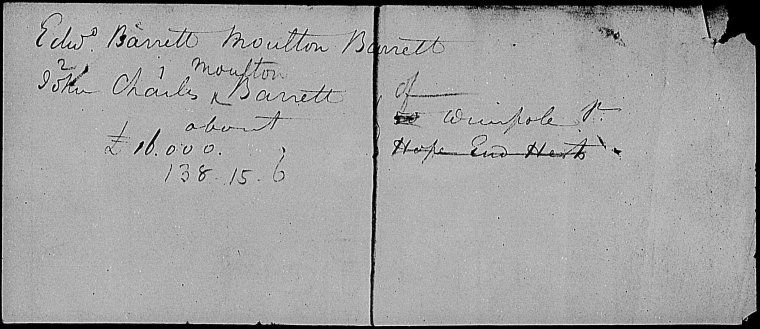 Edwd. Barrett Moulton Barrett
2
Moulton
John Charles ^ Barrett
of
Wimpole St.
about
£ 16.000.
Hope End
138. 15. 6